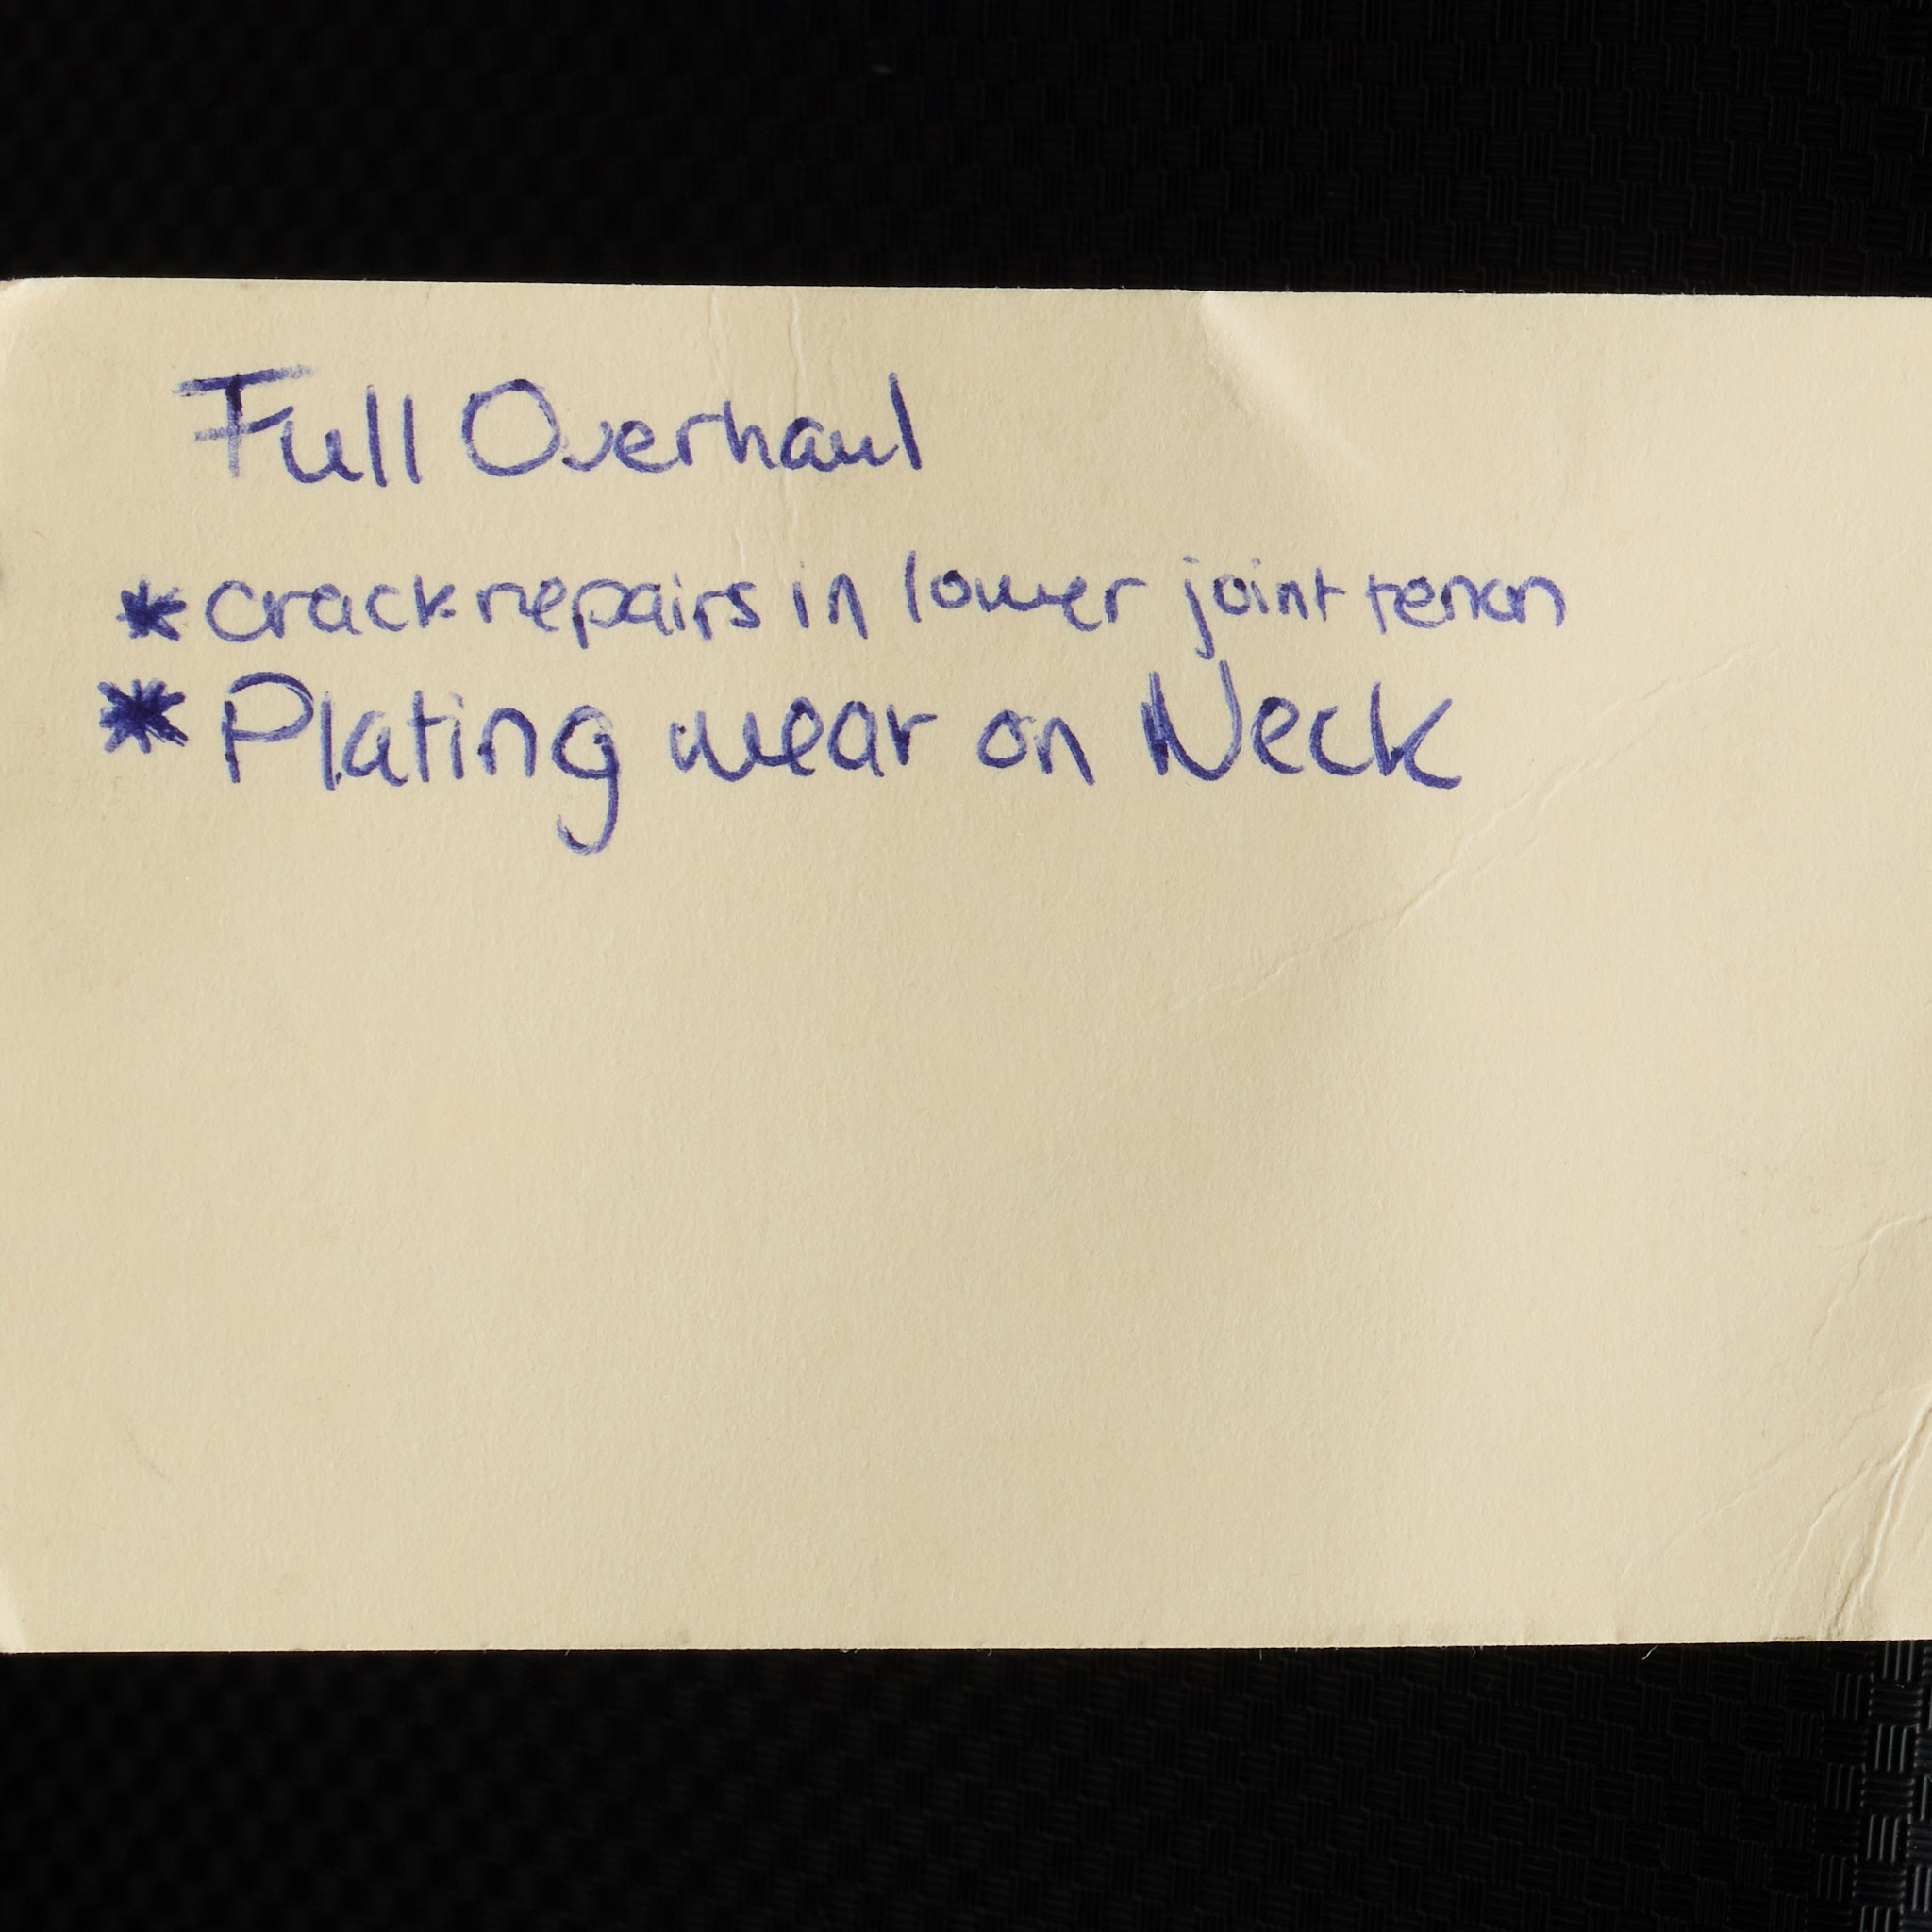 Full Overhaul
* crack repairs in lower joint tenon
* Plating wear on Neck